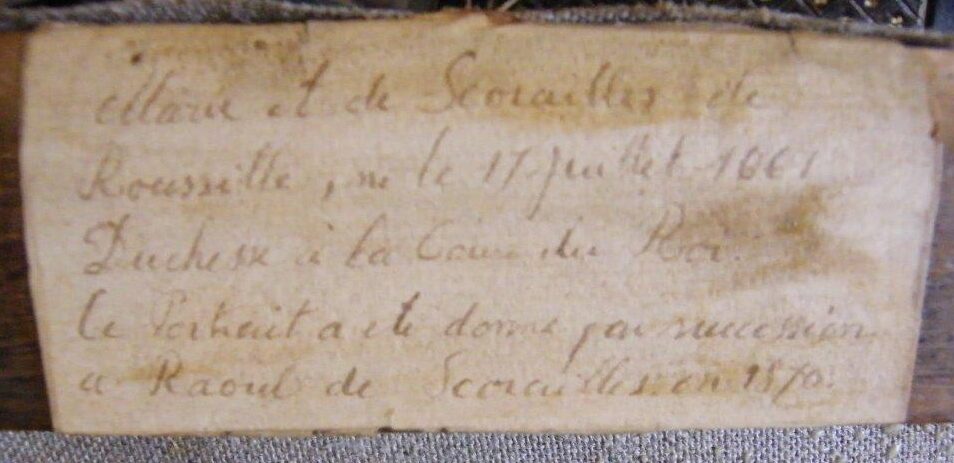 Marie et de Scorailles de
Roussille, ne le 17 Juillet 1661
Duchesse à la Cour du Roi.
Ce Portrait a ete donné par succession
a Raoul de Scorailles en 1870.